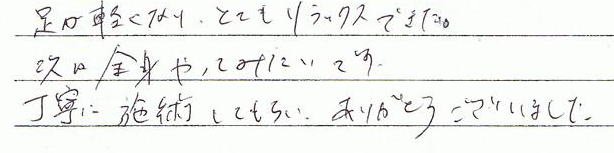 足が軽くなり、とてもリラックスできた。
次は全身やってみたいです。
丁寧に施術してもらい、ありがとうございました。